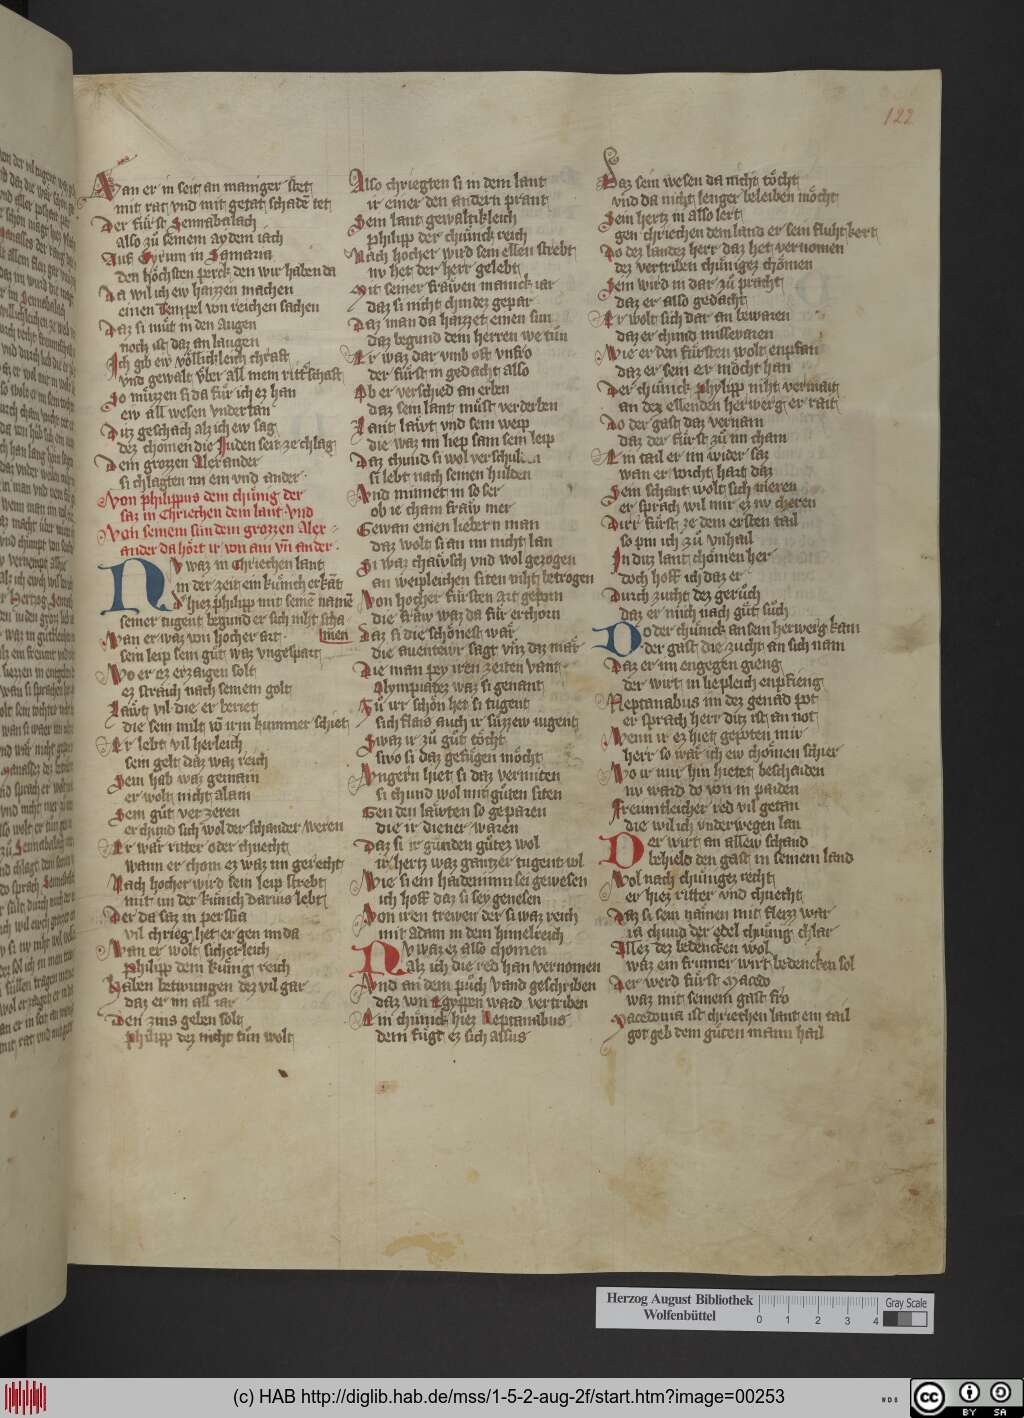 122
Wan er in seit an maniger stet
mit rat vnd mit getat schaden tet
Der fürst Sennabalach
also zů seinem aydem iach
Auf Gyrum in Samaria
den höchsten perck den wir haben da
Da wil ich ew haizzen machen
einen Tempel von reichen sachen
Daz si müt in den Augen
noch ist daz an laugen
Ich gib ew völlichleich chraft
vnd gewalt vber all mein rittschaft
So müzzen si da für ich ez han
ew all wesen vndertan
Ditz geschach alz ich ew sag
dez chomen die Juden seit ze chlag
Dem grozzen Alexander
si chlagten im ein vnd ander
Von philippus dem chünig der
saz in Chriechen dem lant vnd
Von seinem sün dem grozzen Alex=
ander da hört ir von ain vn ander
Nv waz in Chriechen lant
in der zeit ein künich erkāt
Er hiez philipp mit seinē namē
seiner tugent begund er sich niht scha
men
Wan er waz von hocher art
sein leip sein güt waz vngespart
Wo er ez erzaigen solt
ez strauch nach seinem golt
Läwt vil die er beriet
die sein milt vō irm kummer schiet
Er lebt vil herleich
sein gelt daz waz reich
Sein hab waz gemain
er wolt nicht alain
Sein güt verzeren
er chund sich wol der schanden weren
Er wär ritter oder chnecht
wann er chom ez waz im gerecht
Nach hocher wird sein leip strebt
mit im der künich darius lebt
Der da saz in persia
vil chrieg het er gen im da
Wan er wolt sicherleich
Philipp dem künig reich
Haben betwungen dez vil gar
daz er im all iar
Den zins geben solt
philipp dez nicht tün wolt
Also chriegten si in dem lant
ir einer den andern prant
Sein lant gewaltikleich
philipp der chünck reich
Nach hocher wird sein ellen strebt
nv het der herr gelebt
Mit seiner frawen manick iar
daz si nicht chindez gepar
Daz man da haizzet einen sun
daz begund dem herren we tün
Er waz dar vmb oft vnfro
der fürst im gedacht also
Ob er verschied an erben
daz sein lant müst verderben
Lant läwt vnd sein weip
die waz im liep sam sein leip
Daz chund si wol
si lebt nach seinen hulden
Vnd minnet in so ser
ob ie cham fraw mer
Gewan einen liebern man
daz wolt si an im nicht lan
Si waz chäwsch vnd wol gezogen
an weipleichen siten niht betrogen
Von hocher fürsten art geporn
die fraw waz da für erchorn
Daz si die schönest wär
die auentewr sagt vnz daz mär
Die man pey iren zeiten vant
Olympiadez waz si genant
Zü irr schön het si tugent
sich flaiz auch ir süzzew iugent
Swaz ir zü güt töcht
swo si daz gefügen möcht
Vngern liet si daz vermiten
si chund wol mit güten siten
Gen den läwten so geparen
die ir diener waren
Daz si ir gunden gütez wol
ir hertz waz gantzer tugent vol
Wie si ein haideninn sei gewesen
ich hoff daz si sey genesen
Von iren trewen der si waz reich
mit Adam in dem himelreich
Nv waz ez also chomen
alz ich die red han vernomen
Vnd an dem püch vand geschriben
daz von Egypten ward vertriben
Ein chünick hiez Neptanabus
dem fügt ez sich alsus
Daz sein wesen da nicht töcht
vnd da nicht lenger beleiben möcht
Sein hertz in also lert
gen chriechen dem land er sein fluht kert
Do dez landez herr daz het vernomen
dez vertriben chünigez chömen
Sein wird in dar zü pracht
daz er also gedacht
Er wolt sich dar an bewaren
daz er chund missevaren
Wie er den fürsten wolt enpfan
daz er sein er möcht han
Der chünick Phylipp niht vermait
an dez ellenden herwerg er rait
Do der gast daz vernam
daz der fürst zü im cham
Ein tail er im wider saz
wan er vorcht hart daz
Sein schant wolt sich meren
er sprach wil mir ez nv cheren
Dirr fürst ze dem ersten tail
so pin ich zü vnhail
In ditz lant chömen her
doch hoff ich daz er
Durch zucht dez gerüch
daz er mich nach güt süch
Do der chünick an sein herwerg kam
der gast die zucht an sich nam
Daz er im engegen gieng
der wirt in liepleich enpfieng
Neptanabus im dez genad pot
er sprach herr ditz ist an not
Wenn ir ez hiet gepoten mir
herr so wär ich ew chömen schier
Wo ir mir hin hietet beschaiden
nv ward do von in paiden
Freuntleicher red vil getan
die wil ich vnderwegen lan
Der wirt an allew schand
behield den gast in seinem land
Wol nach chünigez recht
er hiez ritter vnd chnecht
Daz si sein nämen mit fleizz war
ia chund der edel chünig chlar
Allez dez bedencken wol
waz ein frumer wirt bedencken sol
Der werd fürst Macedo
waz mit seinem gast fro
Macedonia ist chriechen lant ein tail
got geb dem güten mann hail
Herzog August Bibliothek
Wolfenbüttel
0 1 2 3 4
Gray Scale
(c) HAB http://diglib.hab.de/mss/1-5-2-aug-2f/start.htm?image=00253
WDB
cc BY SA